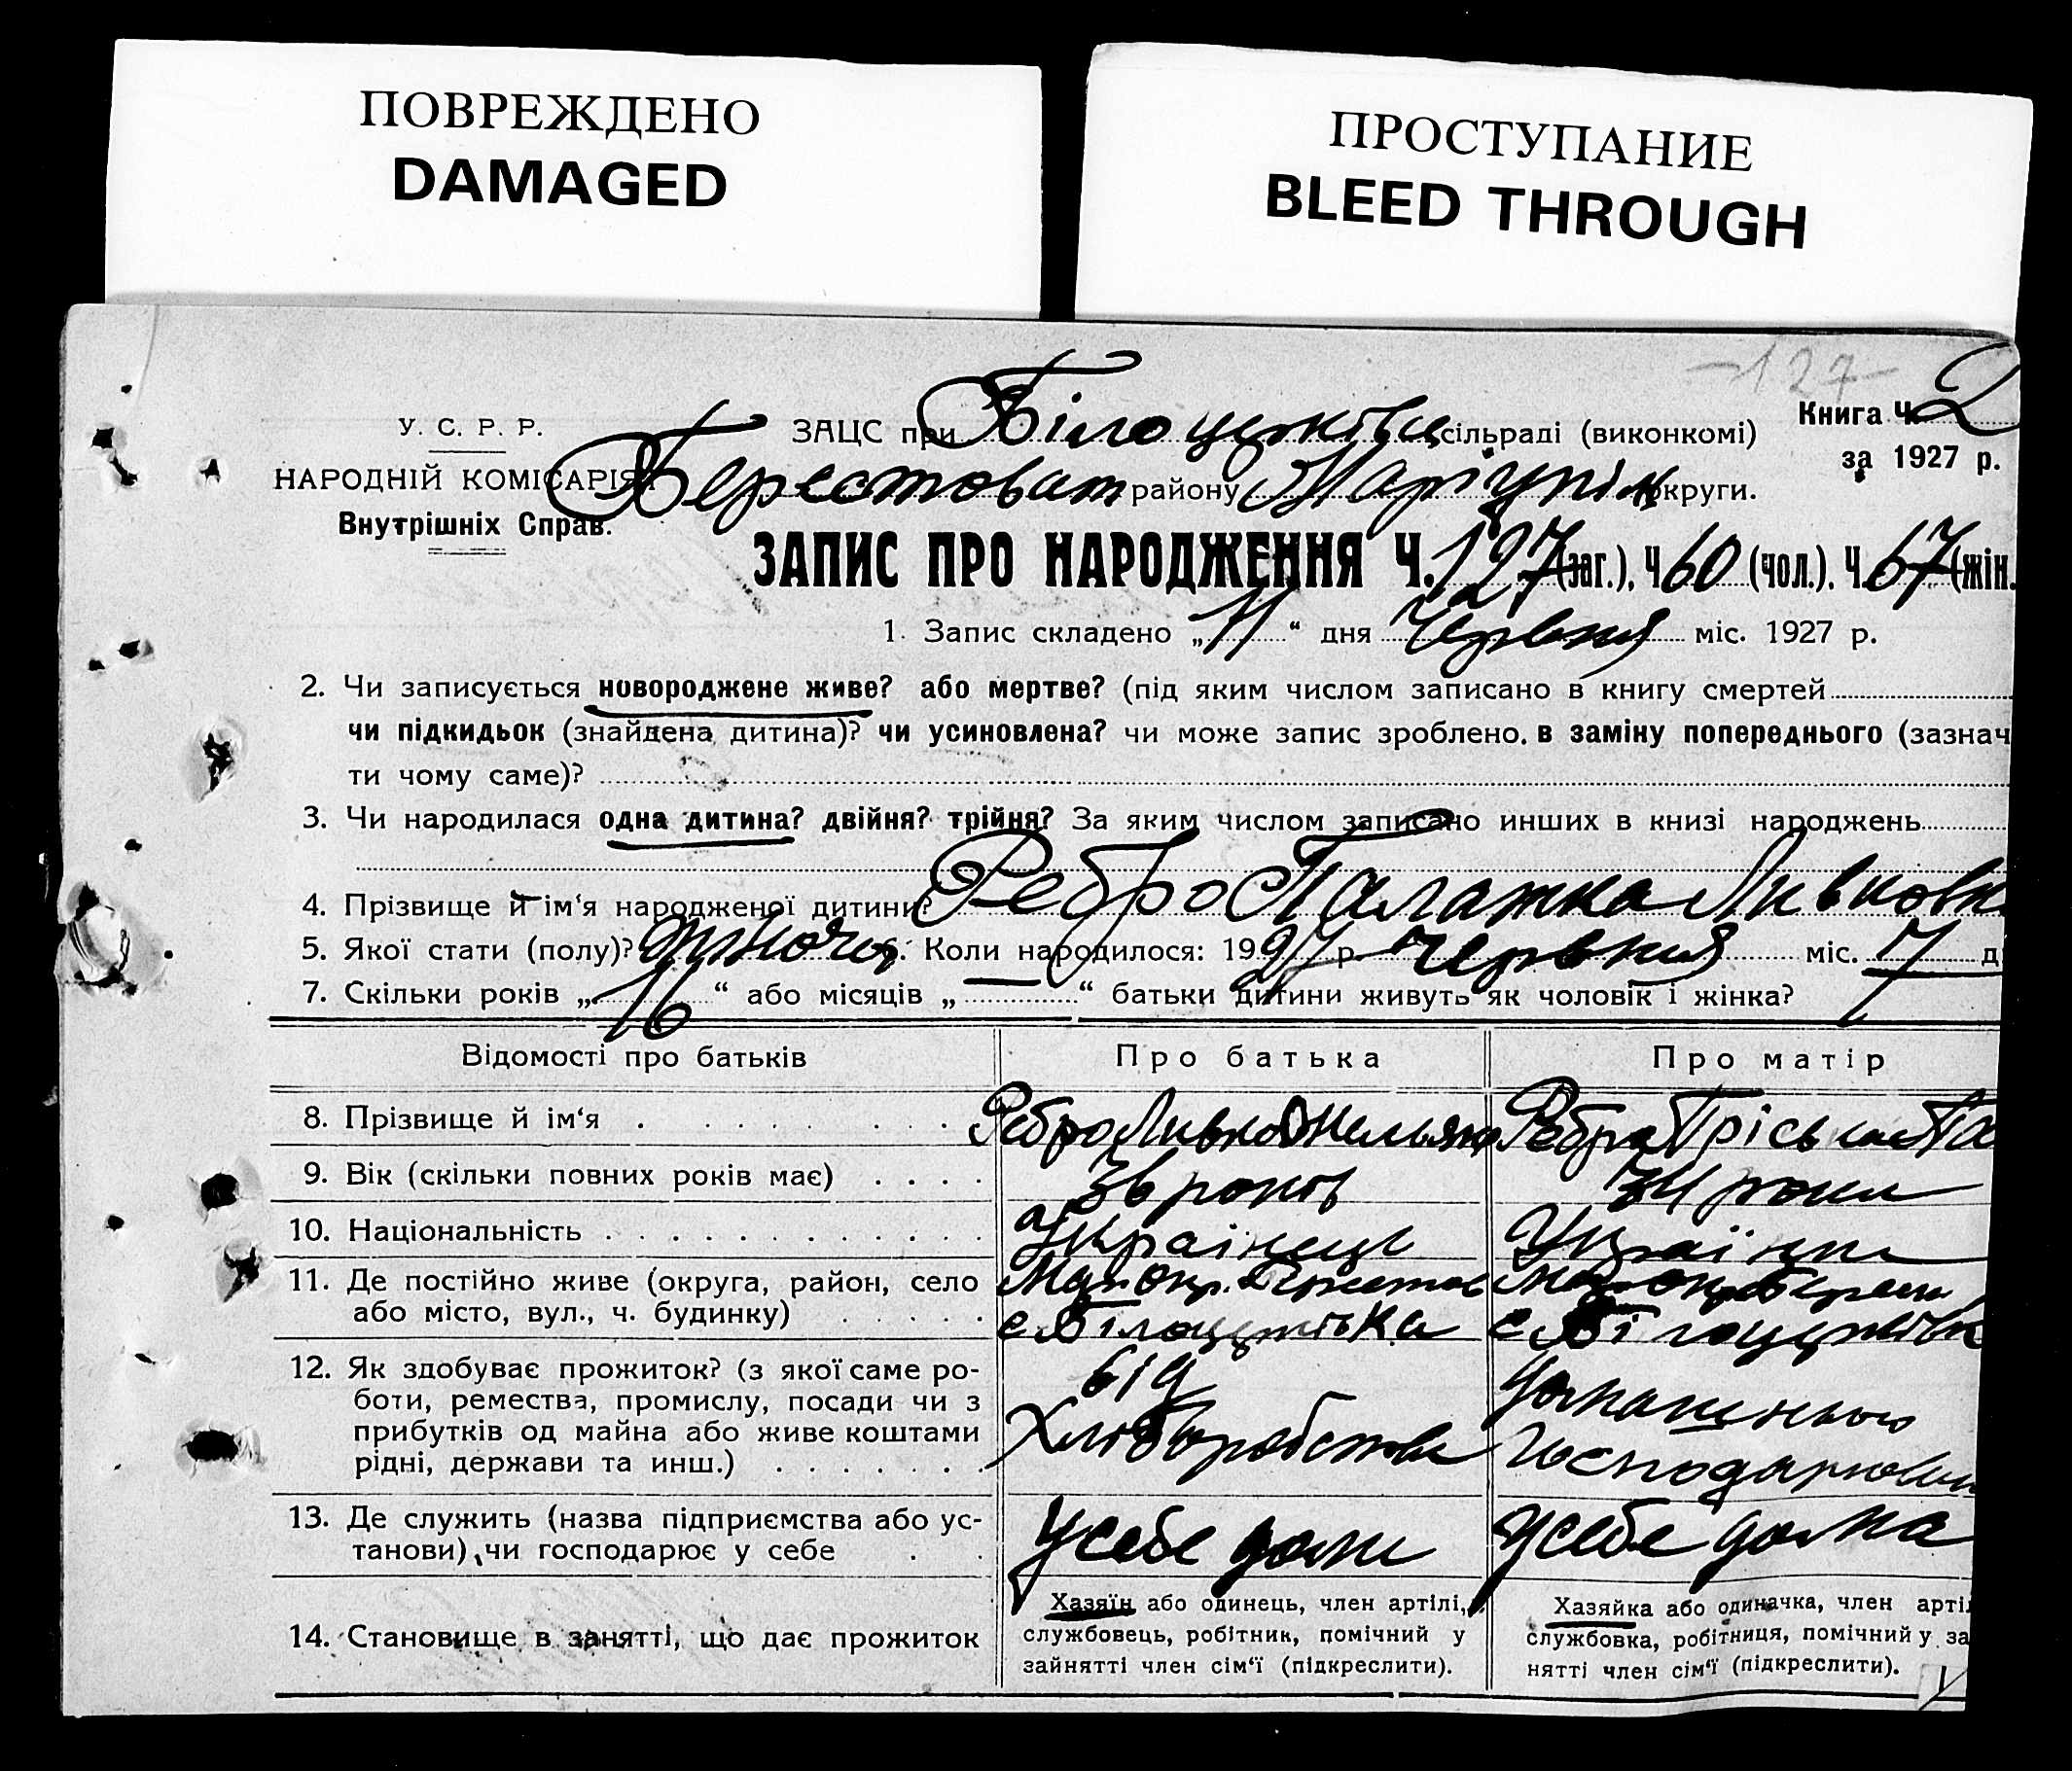 ПОВРЕЖДЕНО
DAMAGED
ПРОСТУПАНИЕ
BLEED THROUGH
-127-
У. С. Р. Р.
НАРОДНІЙ КОМІСАРІЯТ
Внутрішніх Справ.
Книга Ч. 2
за 1927 р.
ЗАЦС при Білоцерківц сільраді (виконкомі)
Берестоват району Маріупіл округи.
ЗАПИС ПРО НАРОДЖЕННЯ Ч. 127 (заг.), Ч 60 (чол.), Ч. 67 (жін.
1. Запис складено „11“ дня Червня міс. 1927 р.
2. Чи записується новороджене живе? або мертве? (під яким числом записано в книгу смертей
чи підкидьок (знайдена дитина)? чи усиновлена? чи може запис зроблено в заміну попереднього (зазнач
ти чому саме)?
3. Чи народилася одна дитина? двійня? трійня? За яким числом записано инших в книзі народжень
4. Прізвище й ім‘я народженої дитини? Ребро Палажка
5. Якої стати (полу)? жіночої 6. Коли народилося: 1927 р. Червня міс. 7 д
7. Скільки років „16“ або місяців „—“ батьки дитини живуть як чоловік і жінка?
Відомості про батьків
Про батька
Про матір
8. Прізвище й ім‘я
Ребро
Ребра Пріська
9. Вік (скільки повних років має)
36 років
34 роки
10. Національність
Українець
Українка
11. Де постійно живе (округа, район, село
або місто, вул., ч. будинку)
Мар Окр.
с Білоцерківка
с Білоцерківк
12. Як здобуває прожиток? (з якої саме ро-
боти, ремества, промислу, посади чи з
прибутків од майна або живе коштами
рідні, держави та инш.)
від
Хліборобства
домашнього
господарювань
13. Де служить (назва підприємства або ус-
танови), чи господарює у себе
у себе дома
у себе дома
14. Становище в занятті, що дає прожиток
Хазяїн або одинець, член артілі,
службовець, робітник, помічний у
зайнятті член сім‘ї (підкреслити).
Хазяйка або одиначка, член артіл
службовка, робітниця, помічний у за
нятті член сім‘ї (підкреслити).